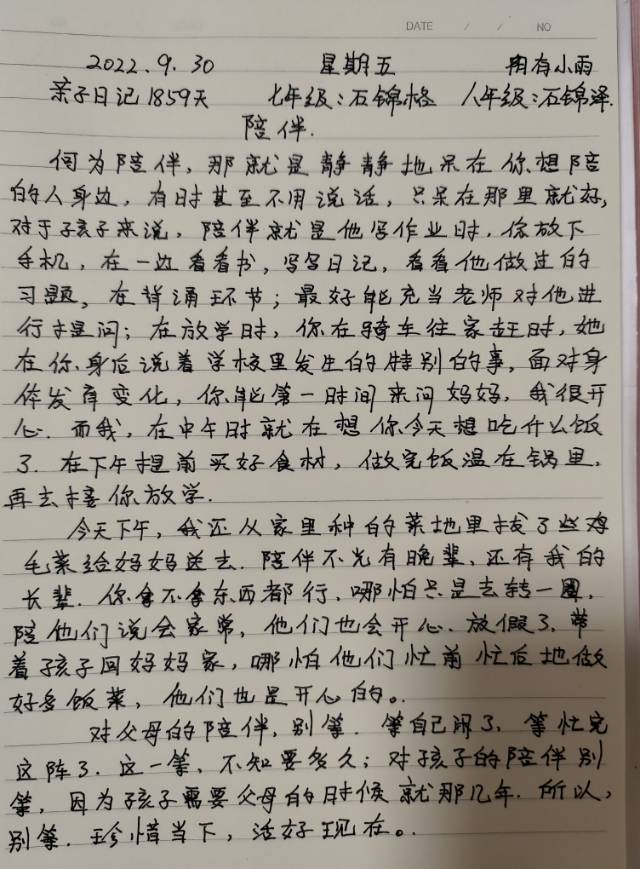 DATE / / NO
2022.9.30 星期五 阴有小雨
亲子日记1859天 七年级:石锦格 八年级:石锦泽.
陪伴.
何为陪伴,那就是静静地呆在你想陪
的人身边,有时甚至不用说话,只呆在那里就好,
对于孩子来说,陪伴就是他写作业时,你放下
手机,在一边看看书,写写日记,看看他做过的
习题,在背诵环节;最好能充当老师对他进
行提问;在放学时,你在骑车往家赶时,她
在你身后说着学校里发生的特别的事,面对身
体发育变化,你能第一时间来问妈妈,我很开
心.而我,在中午时就在想你今天想吃什么饭
了.在下午提前买好食材,做完饭温在锅里,
再去接你放学.
今天下午,我还从家里种的菜地里拔了些鸡
毛菜给妈妈送去.陪伴不光有晚辈,还有我的
长辈.你拿不拿东西都行,哪怕只是去转一圈,
陪他们说会家常,他们也会开心.放假了,带
着孩子回妈妈家,哪怕他们忙前忙后地做
好多饭菜,他们也是开心的。
对父母的陪伴,别等.等自己闲了,等忙完
这阵了.这一等,不知要多久;对孩子的陪伴别
等,因为孩子需要父母的时候就那几年.所以,
别等.珍惜当下,活好现在。